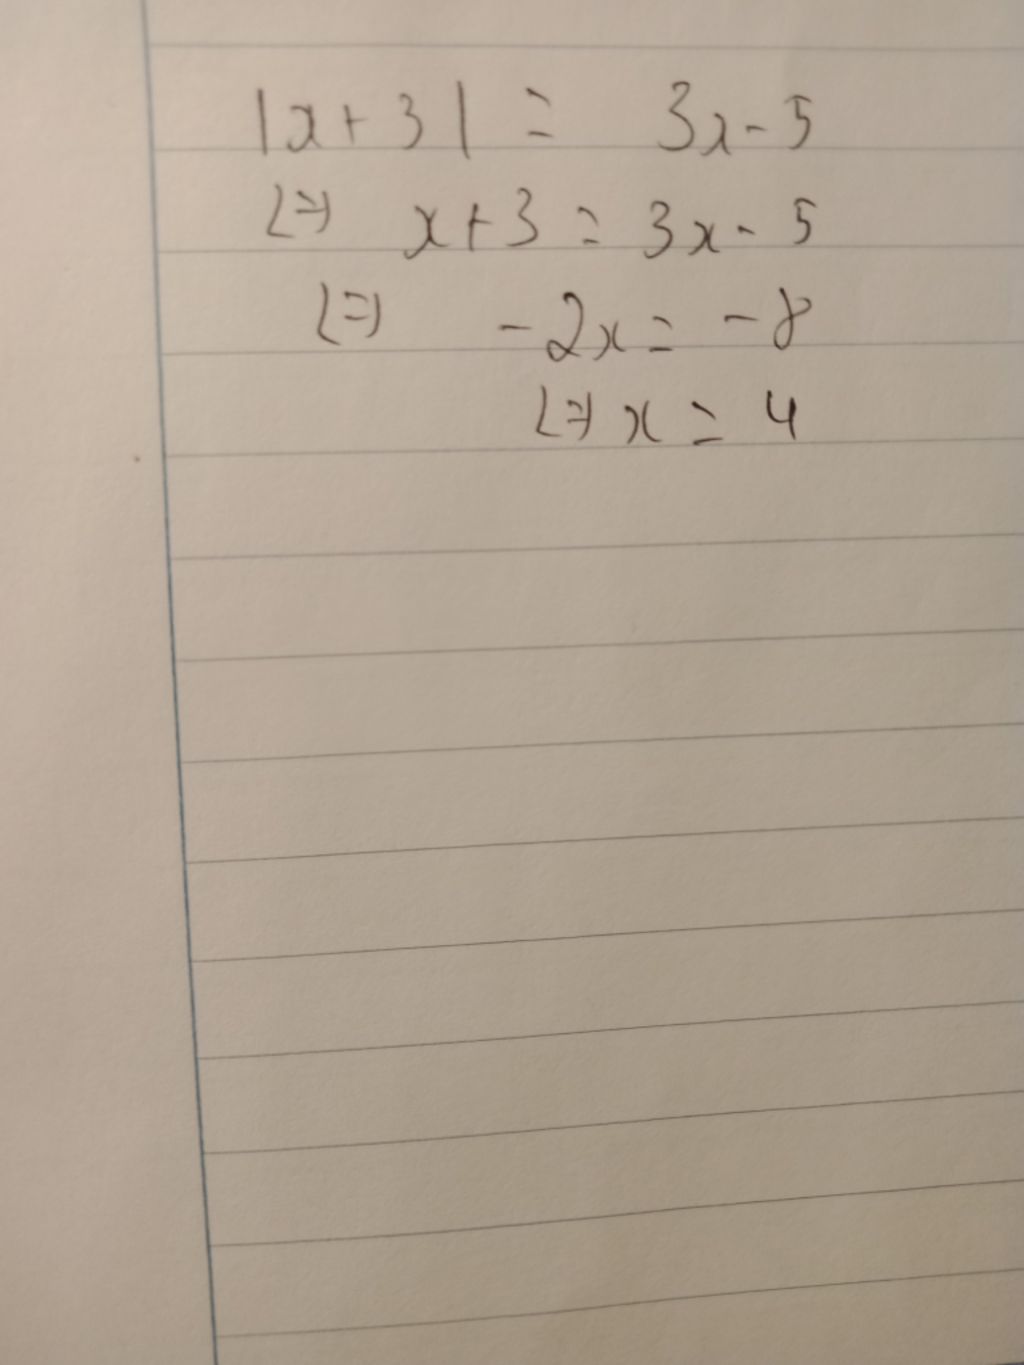 |x+3| = 3x-5
<=> x+3 = 3x-5
<=> -2x = -8
<=> x = 4